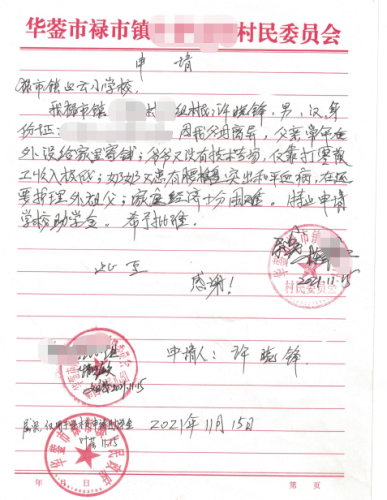 华蓥市禄市镇 村民委员会
申 请
禄市镇 小学校:
我禄市镇 村 组村民:许晓锋,男,汉,身
份证: 因我父母离异,父亲常年在
外没给家里寄钱;爷爷又没有技术专场,仅靠打零散
工收入极低;奶奶又患有腰椎突出和平血病,在还
要护理外祖父;家庭经济十分困难。特此申请
学校助学金。希予批准。
此 至
感谢!
2021.11.15
村民委员会
申请人:许晓锋
2021.11.15
2021年11月15日
华蓥市禄市镇人民政府
年 月 日 第 页